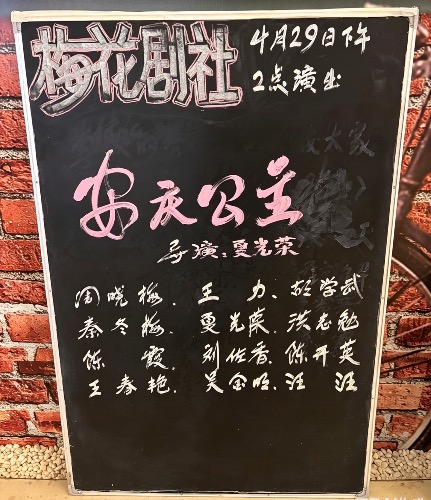 梅花剧社
4月29日下午
2点演出
安庆公主
导演:夏光荣
陶晓梅. 王 力. 胡学武
秦冬梅. 夏光荣. 洪志勉
陈 霞. 刘佐香. 陈开英
王春艳. 吴金旺. 汪 汪